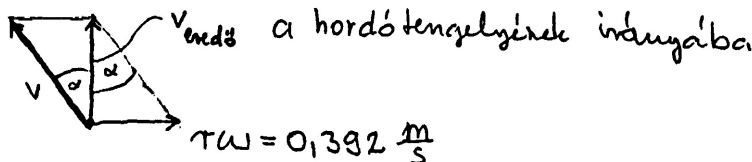 V eredő a hordótengelyének irányába
α α
V
rω = 0,392 m/s